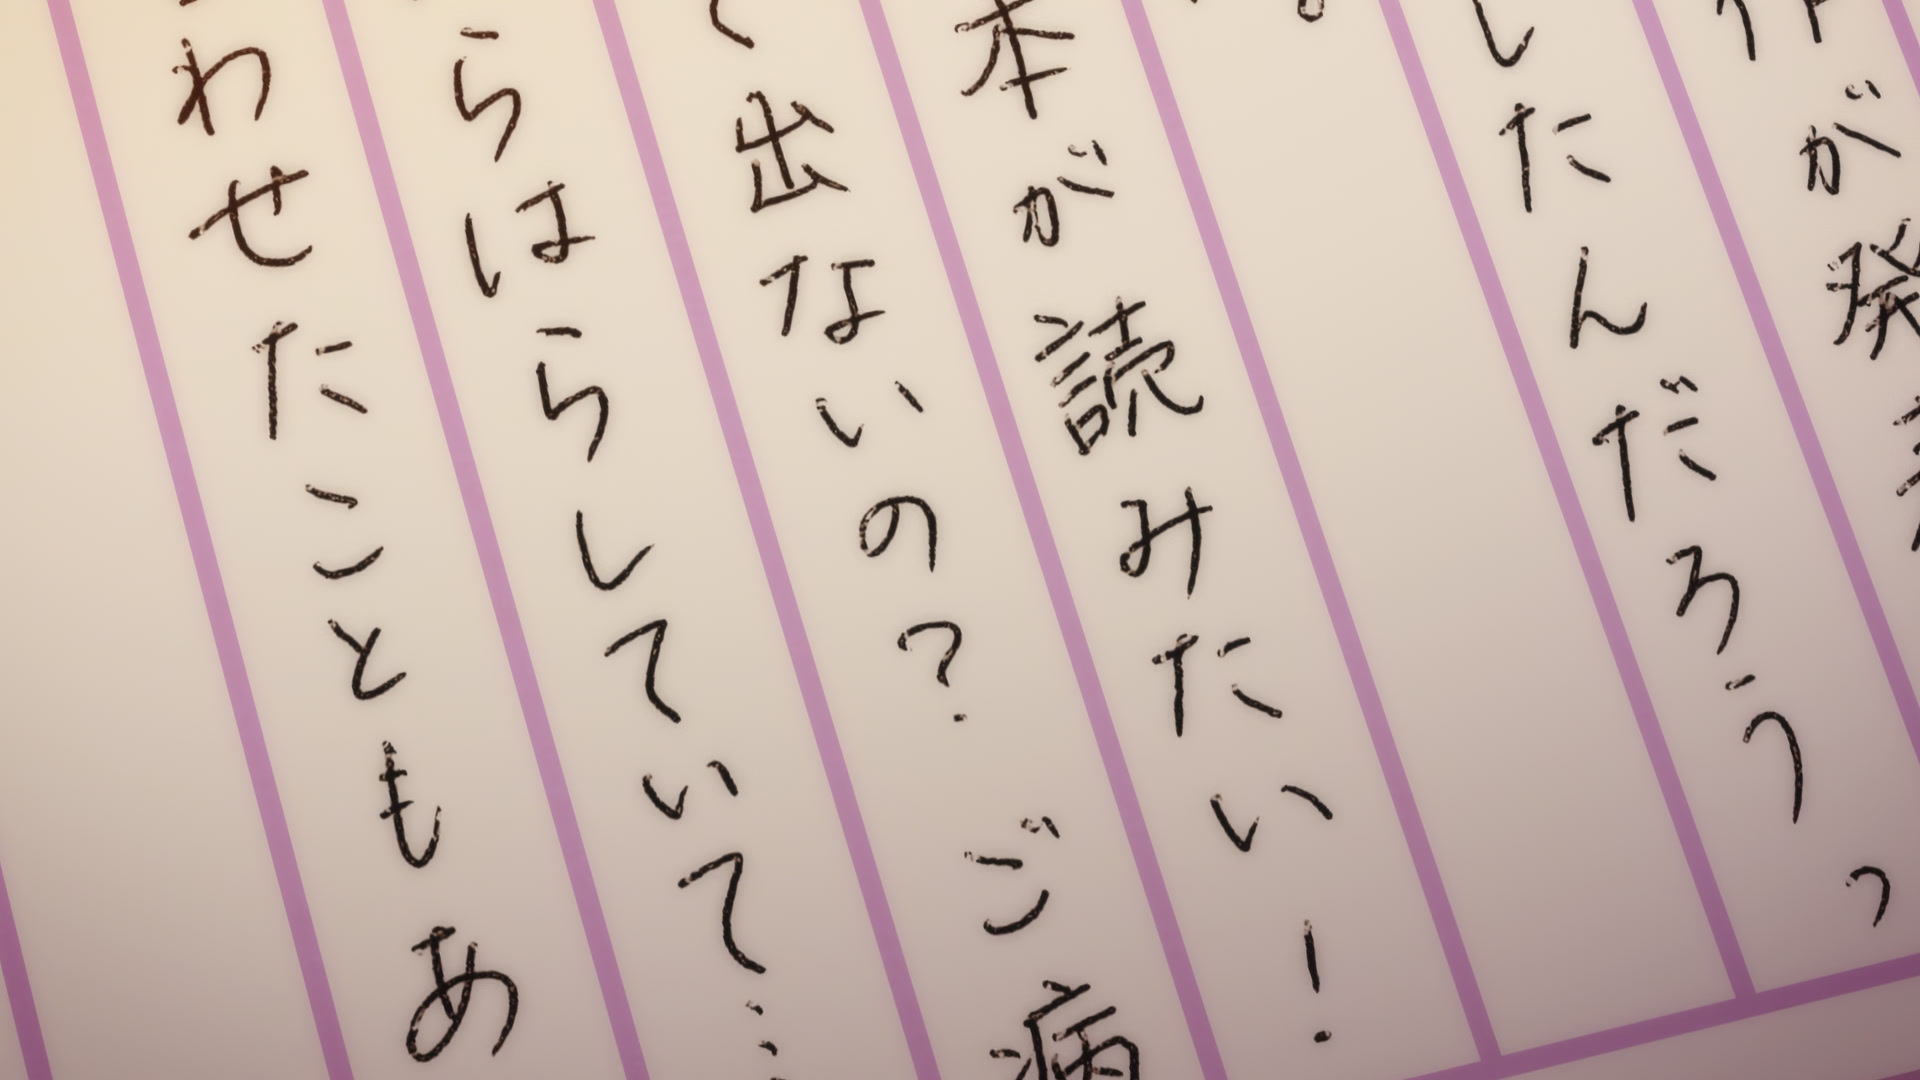 が発
したんだろうっ
本が読みたい!
て出ないの? ご病
らはらしていて…
わせたこともあ